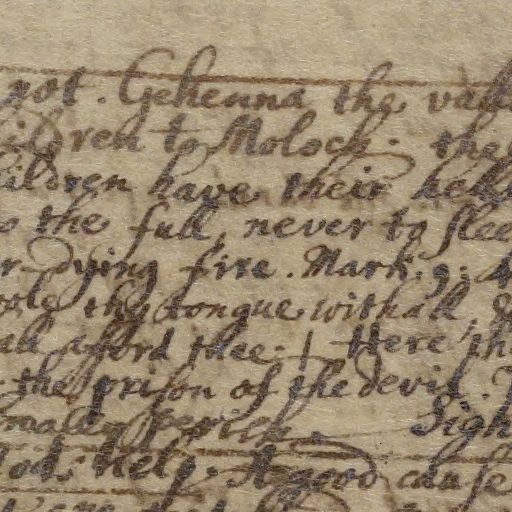 got. Gehenna the vall
ildren to Moloch: the
ildren have their hell
o the full, never to slee
r-dying fire. Mark. 9: 4
oole thy tongue withall, &
all afford thee: | Here th
the prison of the devil.
small perish. Sigh
God. Help. A good cause